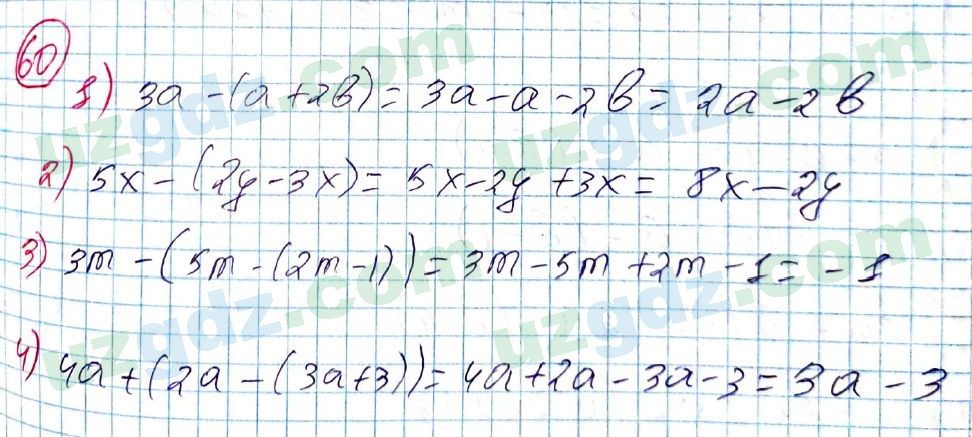 60
1) 3a - (a + 2b) = 3a - a - 2b = 2a - 2b
2) 5x - (2y - 3x) = 5x - 2y + 3x = 8x - 2y
3) 3m - (5m - (2m - 1)) = 3m - 5m + 2m - 1 = - 1
4) 4a + (2a - (3a + 3)) = 4a + 2a - 3a - 3 = 3a - 3
uzgdz.com
uzgdz.com
uzgdz.com
uzgdz.com